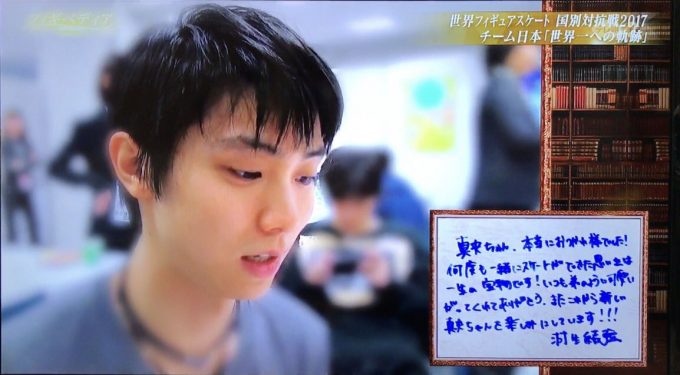 フィギュペディア
世界フィギュアスケート 国別対抗戦2017
チーム日本「世界一への軌跡」
真央ちゃん、本当にお疲れ様でした!
何度も一緒にスケートができた思い出は
一生の宝物です!いつも弟のように可愛い
がってくれてありがとう。またこれから新しい
真央ちゃんを楽しみにしています!!!
羽生結弦